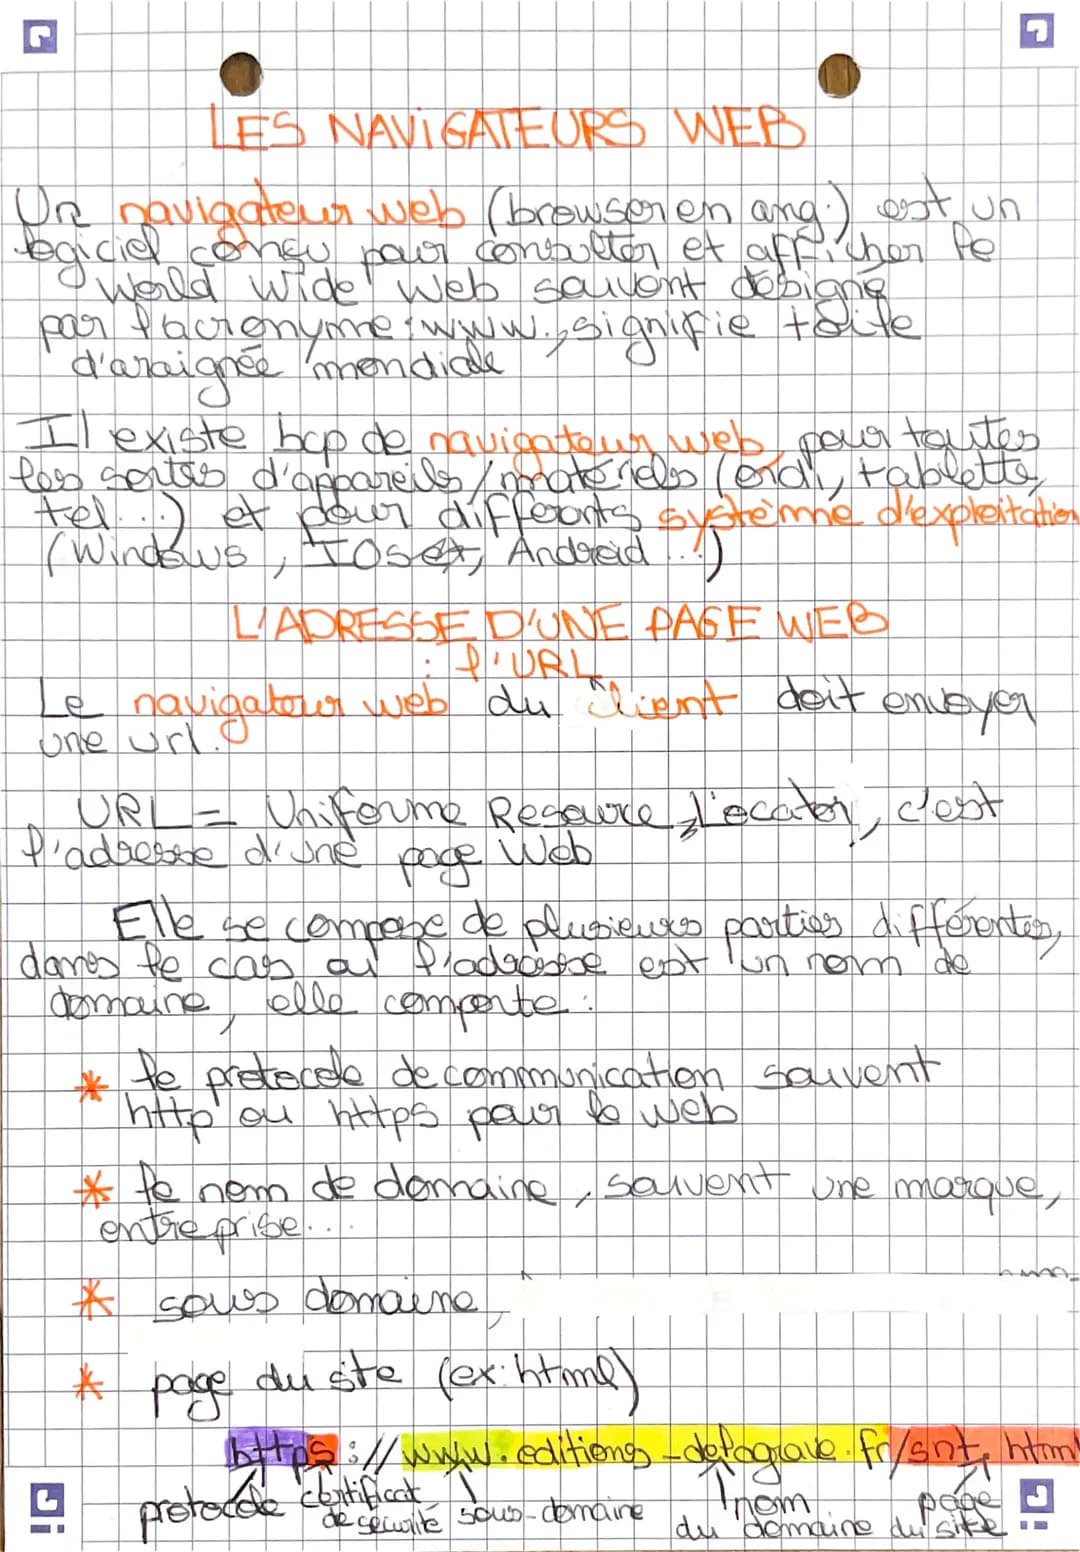 LES NAVIGATEURS WEB
Un navigateur web (browser en ang.) est un
logiciel conçu pour consulter et afficher le
World Wide Web souvent désigné
par l'acronyme : www., signifie toile
d'araignée mondiale
Il existe bcp de navigateur web, pour toutes
les sortes d'appareils / matériels (ordi, tablette,
tel...) et pour différents système d'exploitation
(Windows, IOS, Android ...)
L'ADRESSE D'UNE PAGE WEB
: l'URL
Le navigateur web du client doit envoyer
une url.
URL = Uniforme Resource Locator, c'est
l'adresse d'une page Web
Elle se compose de plusieurs parties différentes,
dans le cas où l'adresse est un nom de
domaine, elle comporte :
* le protocole de communication souvent
http ou https pour le web
* le nom de domaine, souvent une marque,
entreprise...
* sous domaine,
* page du site (ex: html)
https://www.editions-delagrave.fr/snt.html
protocole certificat de sécurité sous-domaine nom du domaine page du site